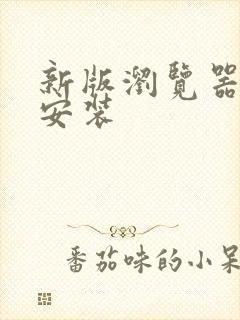 新版瀏覽器
安裝
番茄味的小呆